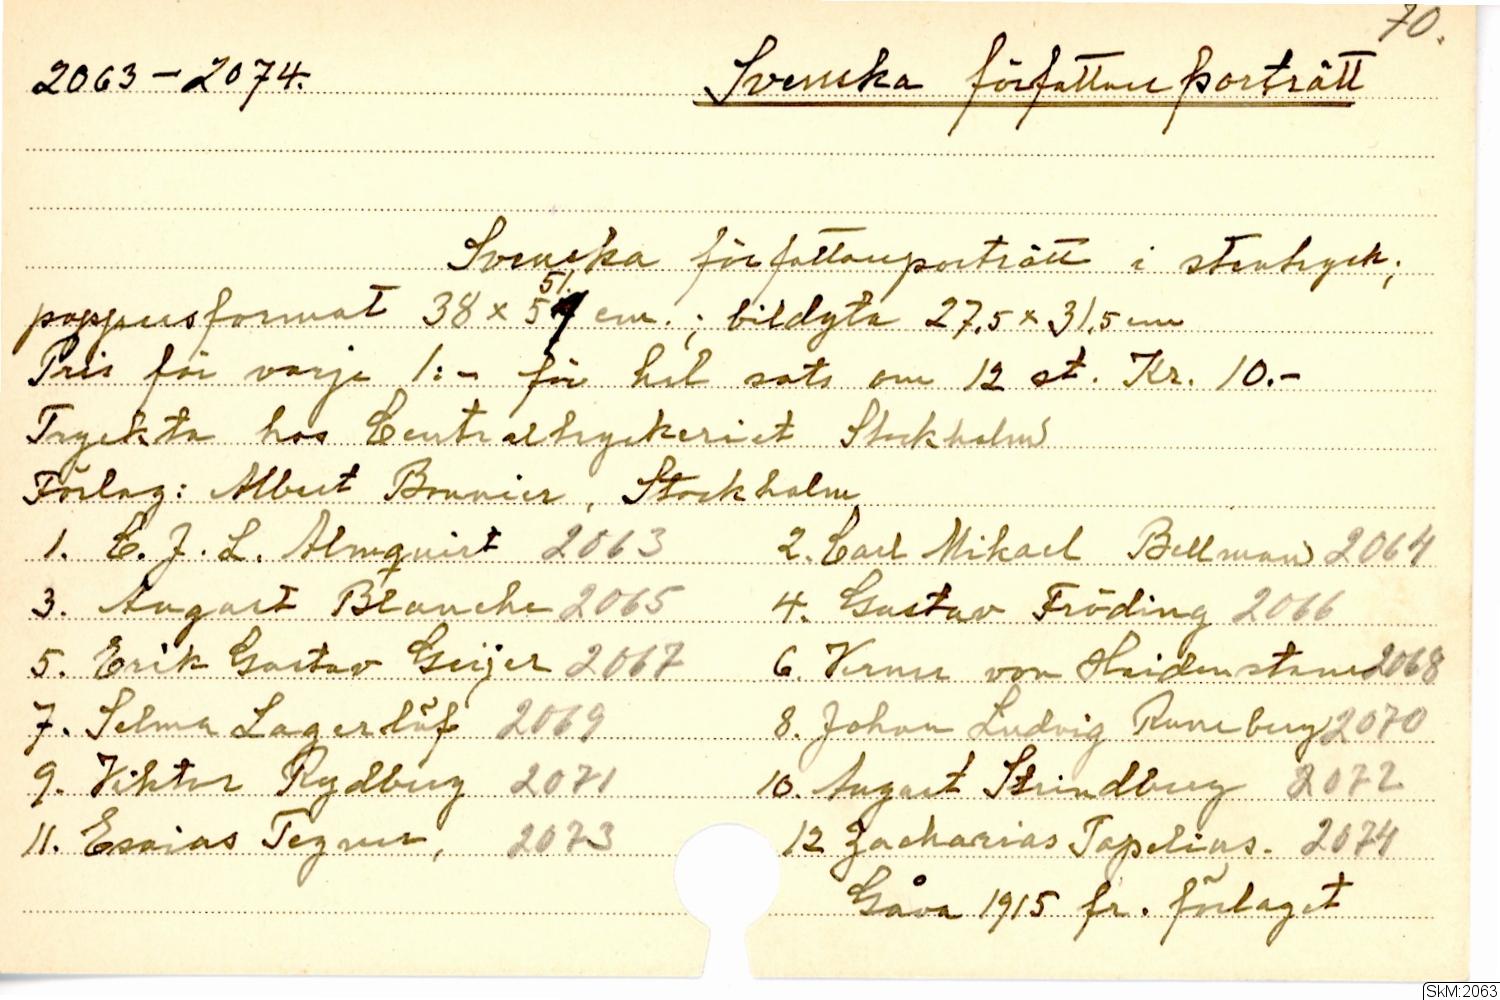 70.
2063 - 2074. Svenska författare porträtt
Svenska författareporträtt i stentryck;
pappersformat 38 x 51 cm.; bildyta 27,5 x 31,5 cm
Pris för varje 1:- för hel sats om 12 st. Kr. 10.-
Tryckta hos Centraltryckeriet Stockholm
Förlag: Albert Bonnier, Stockholm
1. C. J. L. Almquist 2063 2. Carl Mikael Bellman 2064
3. August Blanche 2065 4. Gustav Fröding 2066
5. Erik Gustav Geijer 2067 6. Verner von Heidenstam 2068
7. Selma Lagerlöf 2069 8. Johan Ludvig Runeberg 2070
9. Viktor Rydberg 2071 10. August Strindberg 2072
11. Esaias Tegner, 2073 12 Zacharias Topelius. 2074
Gåva 1915 fr. förlaget
SkM:2063